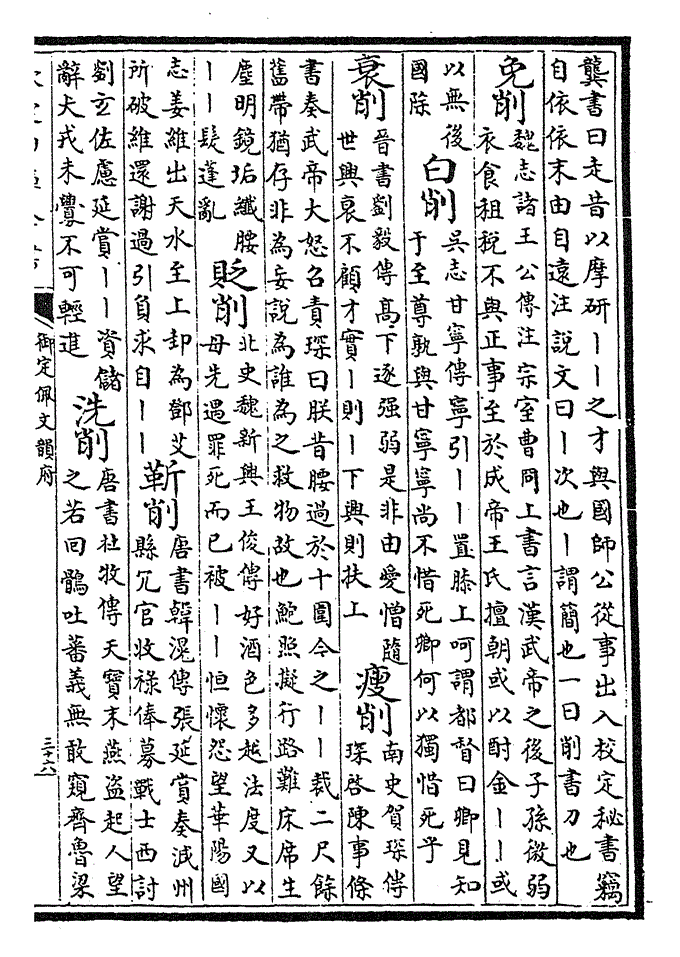 龔書曰走昔以摩研丨丨之才與國師公從事出入校定秘書竊
自依依末由自遠注說文曰丨次也丨謂簡也一曰削書刀也
免削
魏志諸王公傳注宗室曹冏上書言漢武帝之後子孫微弱
衣食租稅不與正事至於成帝王氏擅朝或以酎金丨丨或
以無後
國除
白削
吳志甘寧傳寧引丨丨置膝上呵謂都督曰卿見知
于至尊孰與甘寧寧尚不惜死卿何以獨惜死乎
衰削
晉書劉毅傳高下逐强弱是非由愛憎隨
世興衰不顧才實丨則丨下興則扶上
瘦削
南史賀琛傳
琛啓陳事條
書奏武帝大怒召責琛曰朕昔腰過於十圍今之丨丨裁二尺餘
舊帶猶存非為妄說為誰為之救物故也鮑照擬行路難床席生
塵明鏡垢纖腰
丨丨髮蓬亂
貶削
北史魏新興王俊傳好酒色多越法度又以
母先遇罪死而已被丨丨恒懷怨望華陽國
志姜維出天水至上邽為鄧艾
所破維還謝過引負求自丨丨
靳削
唐書韓滉傳張延賞奏減州
縣冗官收祿俸募戰士西討
劉玄佐慮延賞丨丨資儲
辭犬戎未釁不可輕進
洗削
唐書杜牧傳天寶末燕盜起人望
之若回鶻吐蕃義無敢窺齊魯梁
御定佩文韻府
三十六